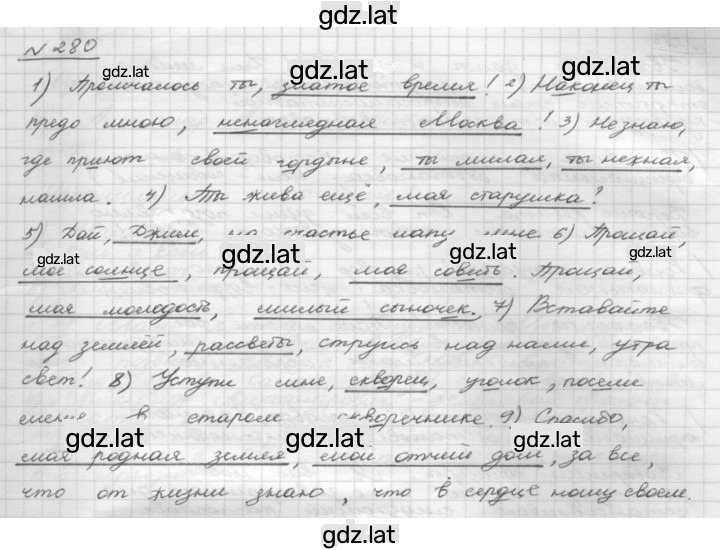 gdz.lat
N 280
gdz.lat gdz.lat
1) Промчалось ты, златое время! 2) Наконец ты
предо мною, ненаглядная Москва! 3) Не знаю,
gdz.lat gdz.lat
где приют своей гордыне, ты милая, ты нежная,
нашла. 4) Ты жива ещё, моя старушка?
5) Дай, Джим, на счастье лапу мне 6) Прощай,
gdz.lat gdz.lat gdz.lat
мое солнце, прощай, моя совесть. Прощай,
моя молодость, милый сыночек. 7) Вставайте
gdz.lat gdz.lat
над землёй, рассветы, струись над нами, утра
свет! 8) Уступи мне, скворец, уголок, посели
меня в старом скворечнике. 9) Спасибо,
gdz.lat gdz.lat gdz.lat
моя родная земля, мой отчий дом, за все,
что от жизни знаю, что в сердце ношу своем.
gdz.lat